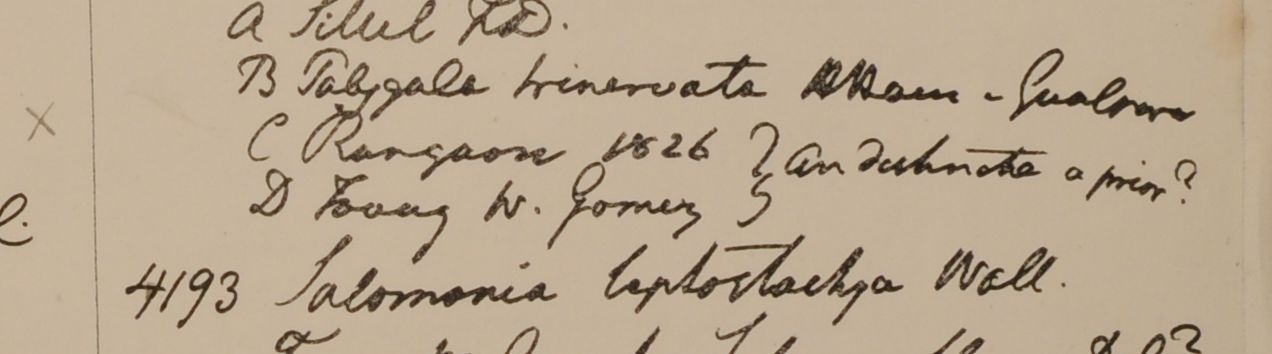 A Sillet F.D.
B Polygala trinervata HHam - Gualpara
C Rangaon 1826 } an distincta a prior?
D Tavoy W. Gomez }
4193 Salomonia leptostachya Wall.